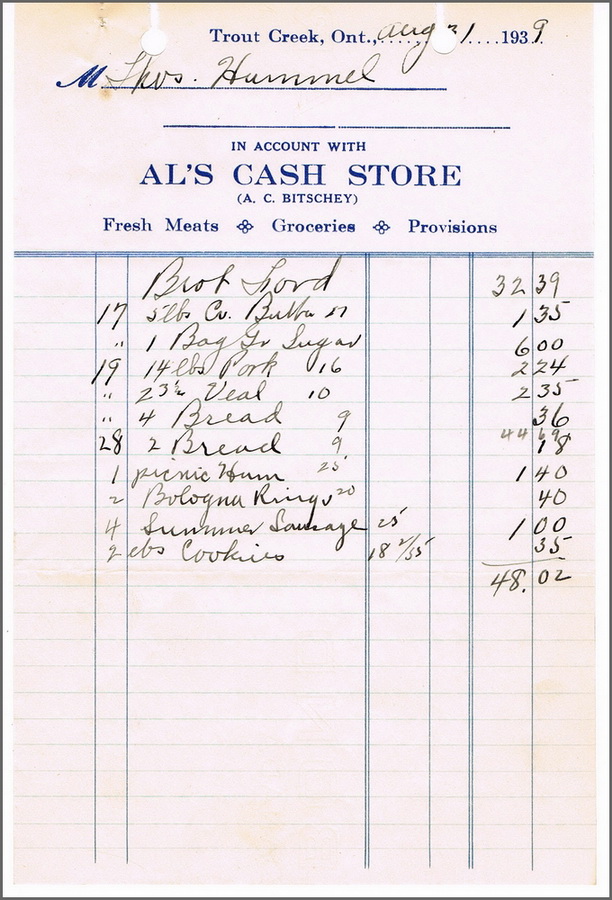 Trout Creek, Ont., Aug 31 1939
M Thos. Hummel
IN ACCOUNT WITH
AL'S CASH STORE
(A. C. BITSCHEY)
Fresh Meats Groceries Provisions
Brot Ford 32 39
17 5 lbs Cr. Butter 27 1 35
" 1 Bag Gr Sugar 6 00
19 14 lbs Pork 16 2 24
" 23½ Veal 10 2 35
" 4 Bread 9 36
44 69
28 2 Bread 9 18
1 picnic Ham 25 1 40
2 Bologna Rings 20 40
4 Summer Sausage 25 1 00
2 lbs Cookies 18 2/35 35
48.02